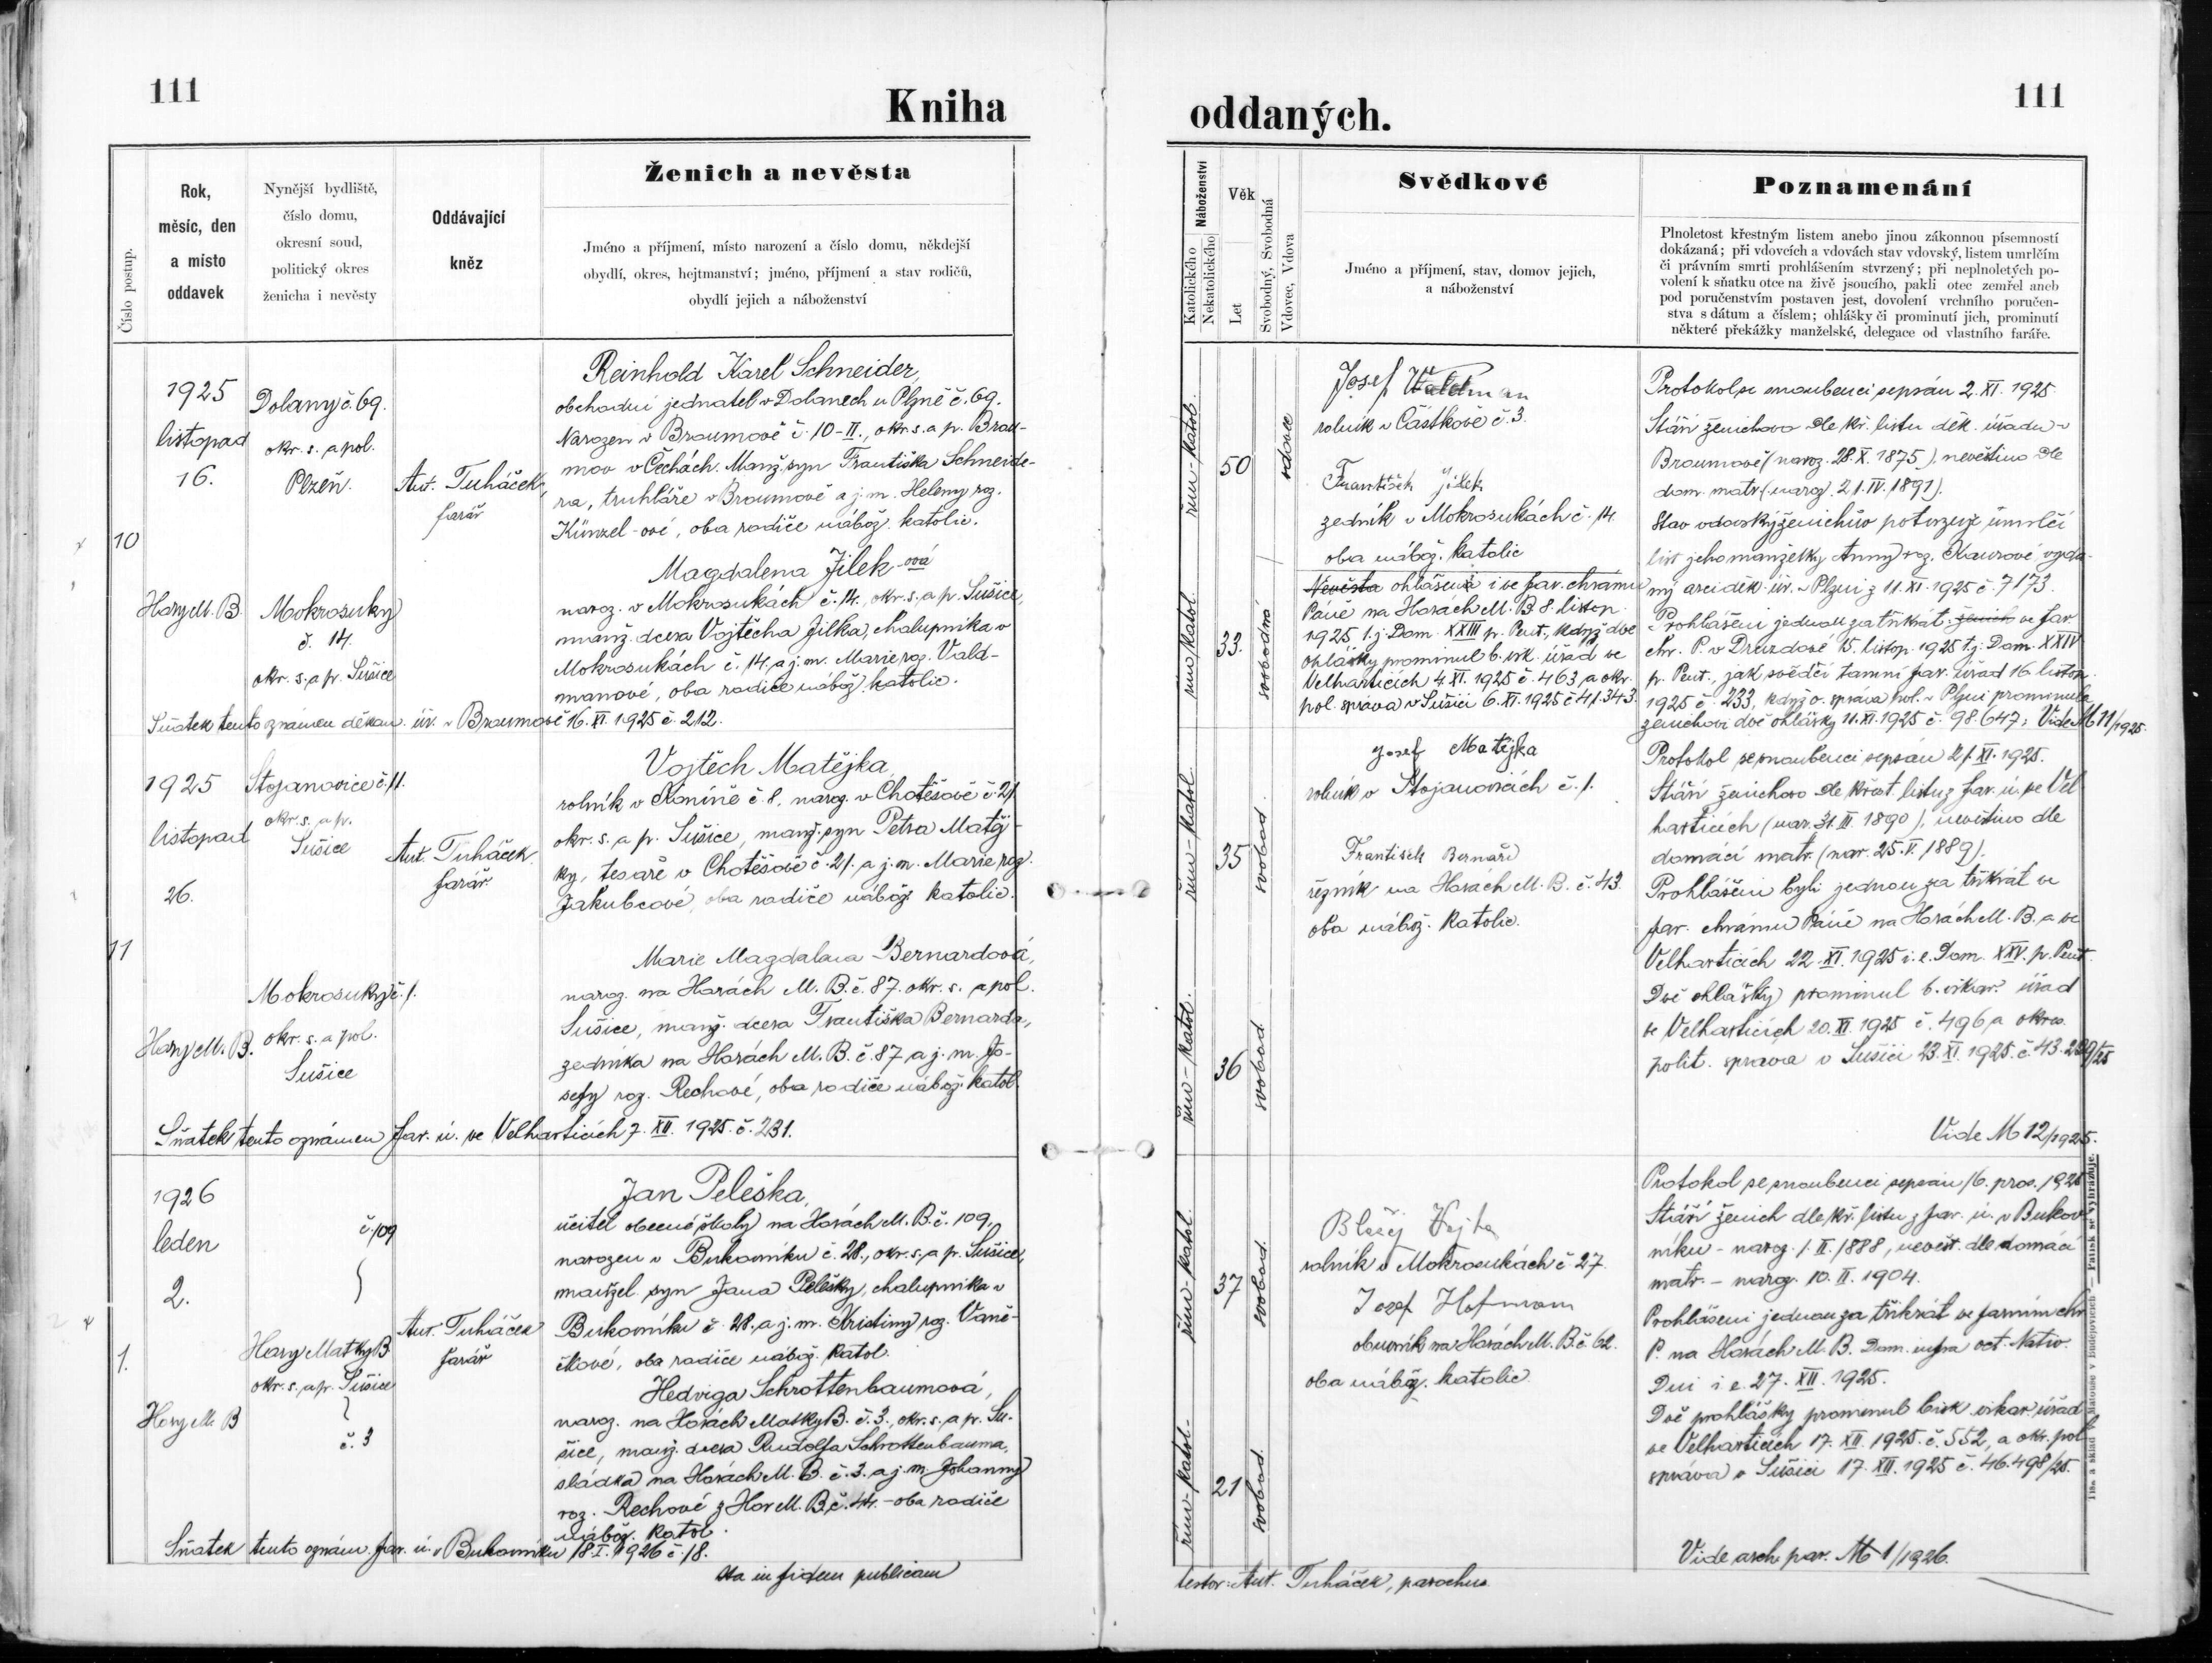 111
Kniha
Číslo postup.
Rok,
měsíc, den
a místo
oddavek
Nynější bydliště,
číslo domu,
okresní soud,
politický okres
ženicha i nevěsty
Oddávající
kněz
Ženich a nevěsta
Jméno a příjmení, místo narození a číslo domu, někdejší
obydlí, okres, hejtmanství; jméno, příjmení a stav rodičů,
obydlí jejich a náboženství
10
1925
listopad
16.
Hory M. B.
Dolany č. 69.
okr. s. a pol.
Plzeň.
Mokrosuky
č. 14.
okr. s. a p. Sušice
Ant. Tuháček,
farář
Reinhold Karel Schneider,
obchodní jednatel v Dolanech u Plzně č. 69.
Narozen v Broumově č. 10-II., okr. s. a p. Brou-
mov v Čechách. Manž. syn Františka Schneide-
ra, truhláře v Broumově a j. m. Heleny roz.
Künzel-ové, oba rodiče nábož. katolic.
Magdalena Jílek-ová
naroz. v Mokrosukách č. 14., okr. s. a p. Sušice,
manž. dcera Vojtěcha Jílka, chalupníka v
Mokrosukách č. 14, a j. m. Marie roz. Vald-
manové, oba rodiče nábož. katolic.
Sňatek tento oznámen děkan. úř. v Broumově 16. XI. 1925 č. 212.
11
1925
listopad
26.
Hory M. B.
Stojanovice č. 11.
okr. s. a p.
Sušice
Mokrosuky č. 1.
okr. s. a pol.
Sušice
Ant. Tuháček
farář
Vojtěch Matějka,
rolník v č. 8, naroz. v Chotěšově č. 21.
okr. s. a p. Sušice, manž. syn Petra Matěj-
ky, tesaře v Chotěšově č. 21. a j. m. Marie roz.
Jakubcové, oba rodiče nábož. katolic.
Marie Magdalena Bernardová,
naroz. na Horách M. B. č. 87. okr. s. a pol.
Sušice, manž. dcera Františka Bernarda,
zedníka na Horách M. B. č. 87, a j. m. Jo-
sefy roz. Rechové, oba rodiče nábož. katol.
Sňatek tento oznámen far. ú. ve Velharticích 7. XII. 1925. č. 231.
1.
1926
leden
2.
Hory M. B
č. 109
Hory Matky B.
okr. s. a p. Sušice
č. 3
Ant. Tuháček
farář
Jan Peleška,
učitel obecné školy na Horách M. B. č. 109,
narozen v Bukovníku č. 28., okr. s. a p. Sušice,
manžel. syn Jana Pelešky, chalupníka v
Bukovníku č. 28. a j. m. Kristiny roz. Vaně-
čkové, oba rodiče nábož. katol.
Hedviga Schrottenbaumová,
naroz. na Horách Matky B. č. 3., okr. s. a p. Su-
šice, manž. dcera Rudolfa Schrottenbauma,
sládka na Horách M. B. č. 3. a j. m. Johanny
roz. Rechové z Hor M. B. č. 44. - oba rodiče
nábož. katol.
Sňatek tento oznám. far. ú. v Bukovníku 18. I. 1926 č. 18.
Ita in fidem publicam
111
oddaných.
Náboženství
Katolického
Nekatolického
Věk
Let
Svobodný, Svobodná
Vdovec, Vdova
Svědkové
Jméno a příjmení, stav, domov jejich,
a náboženství
Poznamenání
Plnoletost křestným listem anebo jinou zákonnou písemností
dokázaná; při vdovcích a vdovách stav vdovský, listem umrlčím
či právním smrti prohlášením stvrzený; při neplnoletých po-
volení k sňatku otce na živě jsoucího, pakli otec zemřel aneb
pod poručenstvím postaven jest, dovolení vrchního poručen-
stva s dátum a číslem; ohlášky či prominutí jich, prominutí
některé překážky manželské, delegace od vlastního faráře.
řím-katol.
50
vdovec
řím katol.
33.
svobodná
Josef Waldman
rolník v Částkově č. 3.
František Jílek
zedník v Mokrosukách č. 14.
oba nábož. katolic
Nevěsta ohlášena i ve far. chrámu
Páně na Horách M. B. 8. listop.
1925 t. j. Dom. XXIII p. Pent., když dvě
ohlášky prominul b. vik. úřad ve
Velharticích 4. XI. 1925 č. 463, a okr.
pol. správa v Sušici 6. XI. 1925 č. 41.343.
Protokol se snoubenci sepsán 2. XI. 1925.
Stáří ženichovo dle kř. listu děk. úřadu v
Broumově (naroz. 28. X. 1875), nevěstino dle
dom. matr. (naroz. 21. IV. 1891).
Stav vdovský ženichův potvrzuje úmrlčí
list jeho manželky Anny roz. vyda-
ný arciděk. úř. v Plzni z 11. XI. 1925 č. 7173.
Prohlášeni jednou za třikrát ženich ve far.
chr. P. v Druzdové 15. listop. 1925 t. j. Dom. XXIV
p. Pent., jak svědčí tamní far. úřad 16. listop.
1925 č. 233, když o. správa pol. v Plzni prominula
ženichovi dvě ohlášky 11. XI. 1925 č. 98.647; Vide M 11/1925.
řím-katol.
35
svobod.
řím-katol.
36
svobod
Josef Matějka
rolník v Stojanovicích č. 1.
František Bernard
řezník na Horách M. B. č. 43.
oba nábož. katolic.
Protokol se snoubenci sepsán 21. XI. 1925.
Stáří ženichovo dle křest. listu z far. ú. ve Vel-
harticích (nar. 31. III. 1890), nevěstino dle
domácí matr. (nar. 25. V. 1889).
Prohlášeni byli jednou za třikrát ve
far. chrámu Páně na Horách M. B. a ve
Velharticích 22. XI. 1925 i. e. Dom. XXV. p. Pent.
Dvě ohlášky prominul b. vikar. úřad
ve Velharticích 20. XI. 1925 č. 496, a okres.
polit. správa v Sušici 23. XI. 1925. č. 43.
Vide M 12/1925.
řím-katol.
37
svobod.
řím-katol.
21
svobod.
Blažej Vojta
rolník v Mokrosukách č. 27.
Josef Hofmann
obuvník na Horách M. B. č. 62.
oba nábož. katolic.
Protokol se snoubenci sepsán 16. pros. 1925
Stáří ženich dle kř. listu z far. ú. v Bukov-
níku - naroz. 1. II. 1888, nevěst. dle domácí
matr. - naroz. 10. II. 1904.
Prohlášeni jednou za třikrát ve farním chr.
P. na Horách M. B. Dom. infra oct. Nativ.
Dni i. e. 27. XII. 1925.
Dvě prohlášky prominul bisk. vikar. úřad
ve Velharticích 17. XII. 1925. č. 552, a okr. pol.
správa v Sušici 17. XII. 1925 č. 46.498/25.
Vide arch. par. M 1/1926.
testor: Ant. Tuháček, parochus.
Patisk se vyhražuje.